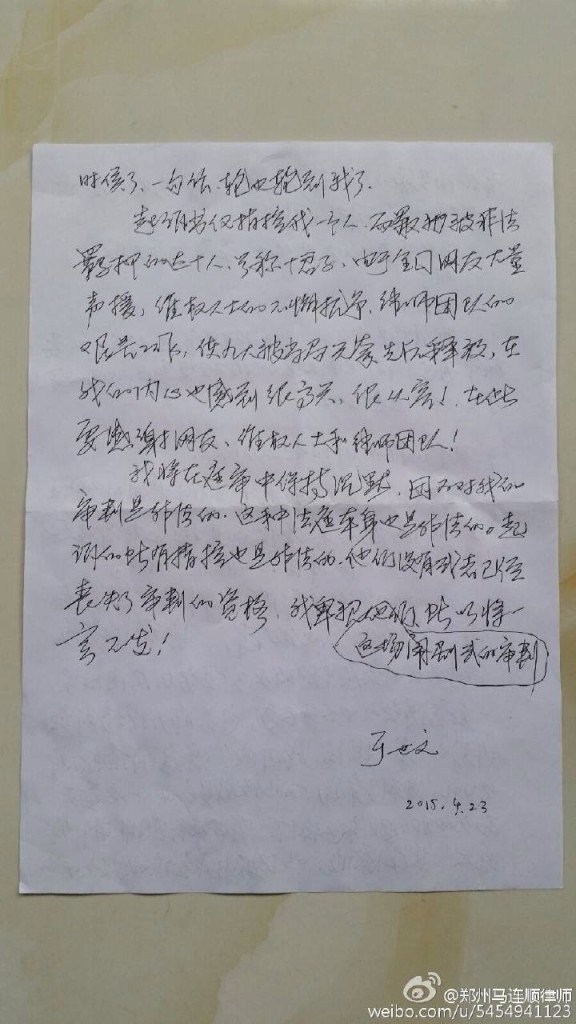 时候了、一句话、轮也轮到我了。
起诉书仅指控我一个人、而最初被非法
羁押的达十人、号称十君子、由于全国网友大量
声援，维权人士的不懈抗争、律师团队的
艰苦工作，使九人被当局无条件先后释放，在
我的内心也感到很高兴、很欣慰！在此
要感谢网友、维权人士和律师团队！
我将在庭审中保持沉默、因为对我的
审判是非法的、这种法庭本身也是非法的。起
诉的所有指控也是非法的、他们没有或者已经
丧失了审判的资格、我卑视他们、所以将一
言不发！
这场闹剧式的审判
于世文
2015.4.23
@郑州马连顺律师
weibo.com/u/5454941123